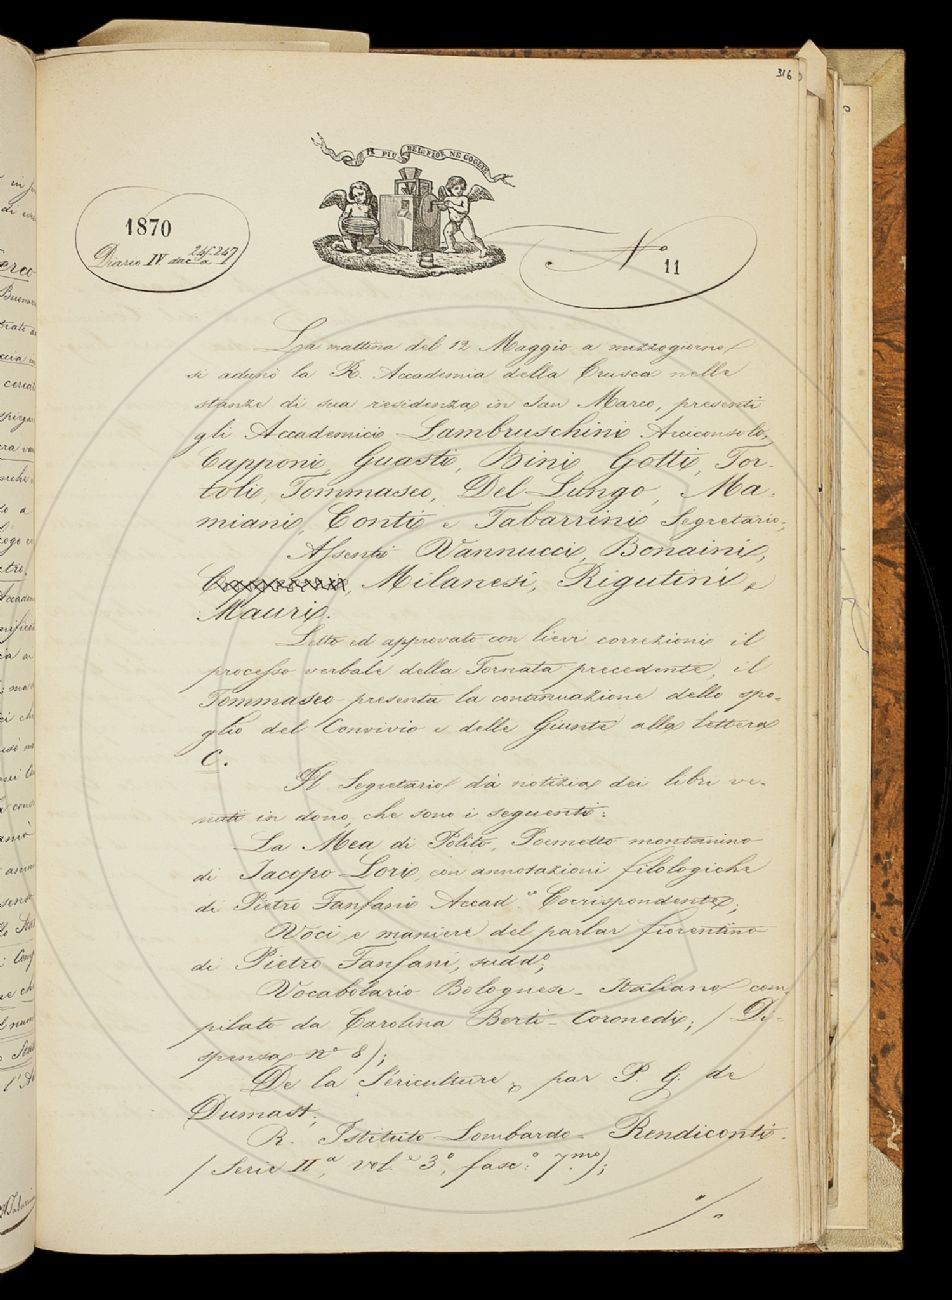 316
IL PIÙ BEL FIOR NE COGLIE
1870
Diario IV
N.º 11
La mattina del 12 Maggio a mezzogiorno
si adunò la R. Accademia della Crusca nelle
stanze di sua residenza in San Marco, presenti
gli Accademici Lambruschini Arciconsolo,
Capponi, Guasti, Bini, Gotti, Tor-
toli, Tommaseo, Del-Lungo, Ma-
miani, Conti e Tabarrini Segretario;
Assenti Vannucci, Bonaini,
Milanesi, Rigutini e
Mauri.
Letto ed approvato con lievi correzioni il
processo verbale della Tornata precedente, il
Tommaseo presenta la continuazione dello spo-
glio del Convivio e delle Giunte alla lettera
C.
Il Segretario dà notizia dei libri ve-
nuti in dono, che sono i seguenti:
La Mea di Polito, Poemetto montanino
di Jacopo Lori, con annotazioni filologiche
di Pietro Fanfani Accad.º Corrispondente;
Voci e maniere del parlar fiorentino
di Pietro Fanfani, suddº;
Vocabolario Bolognese-Italiano com
pilato da Carolina Berti-Coronedi; / Di-
spensa nº 8);
De la Sériculture, par P. G. de
Dumast;
R. Istituto Lombardo - Rendiconti.
/ Serie IIª, vol.º 3º, fasc.º 7.mo);
./.